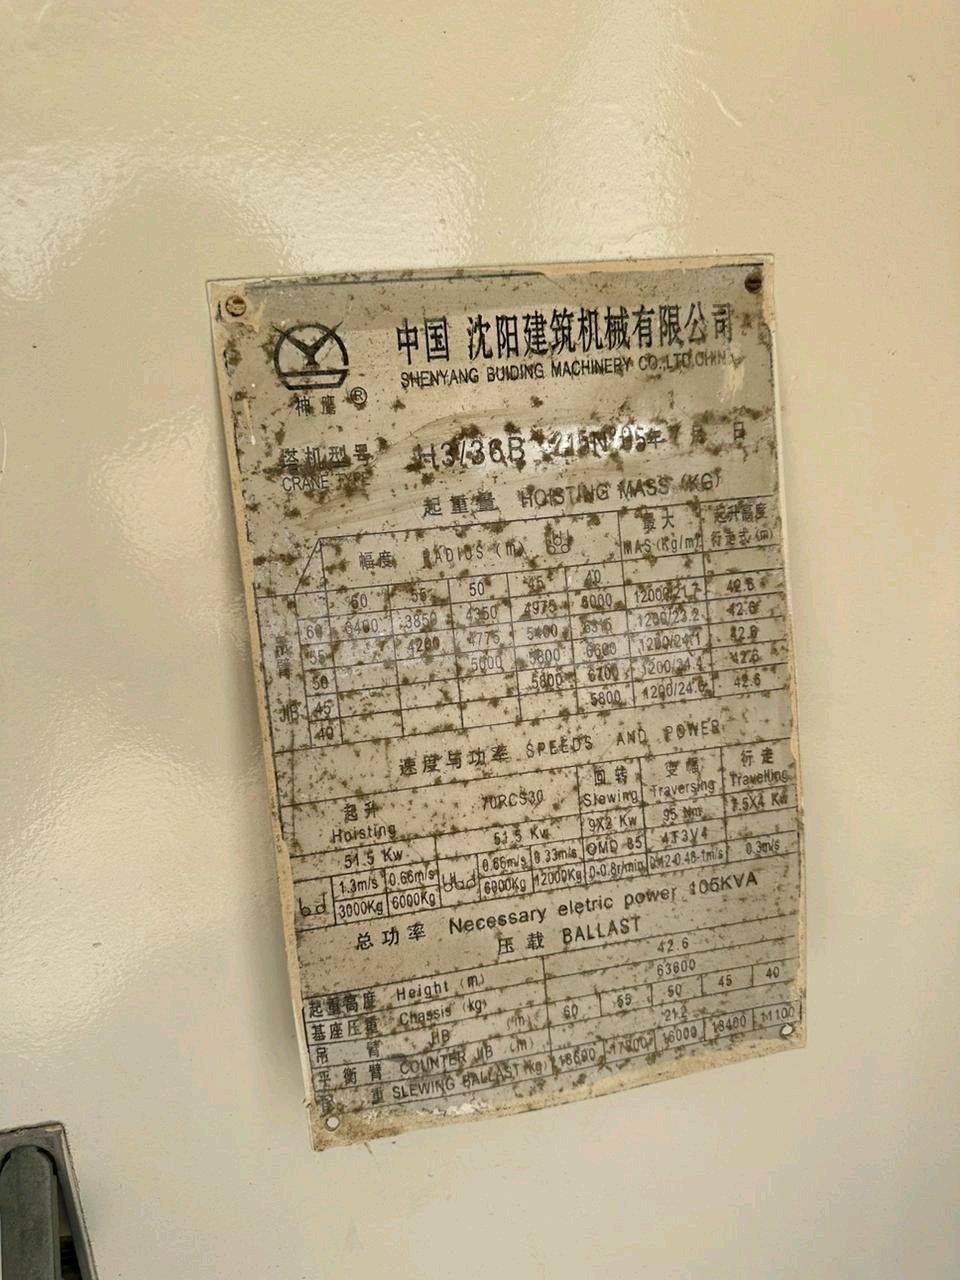 中国 沈阳建筑机械有限公司
SHENYANG BUIDING MACHINERY CO.,LTD.CHINA
神鹰 ®
塔机型号 H3/36B 年 月 日
CRANE TYPE
起重量 HOISTING MASS (KG)
幅度 RADIUS (m) 最大 起升高度
MAS (Kg/m) 行走式 (m)
60 55 50 45 40
60 3400 3850 4350 4975 6000 1200/21.7 42.6
55 4200 4775 5400 6315 1200/23.2 42.6
50 5000 5800 6600 1200/24.1 42.6
45 5800 6700 1200/24.4 42.6
40 5800 1200/24.6 42.6
吊臂 JIB
速度与功率 SPEEDS AND POWER
起升 70RCS30 回转 变幅 行走
Hoisting Slewing Traversing Travelling
51.5 Kw 51.5 Kw 9X2 Kw 95 Nm 7.5X4 Kw
OMD 85 4T3V4
1.3m/s 0.66m/s 0.66m/s 0.33m/s 0-0.8r/min 0.3m/s
3000Kg 6000Kg 6000Kg 12000Kg
总功率 Necessary eletric power 105KVA
压载 BALLAST
起重高度 Height (m) 42.6
基座压重 Chassis (kg) 63600
吊臂 JIB (m) 60 55 50 45 40
平衡臂 COUNTER JIB (m) 21.2
重 SLEWING BALLAST (Kg) 18600 17300 16000 13400 11100